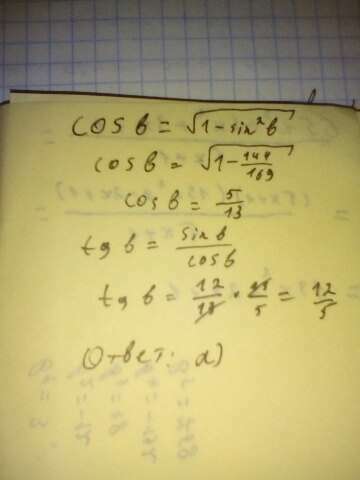 cos b = √1 - sin² b
cos b = √1 - 144/169
cos b = 5/13
tg b = sin b / cos b
tg b = 12/13 · 13/5 = 12/5
Ответ: а)